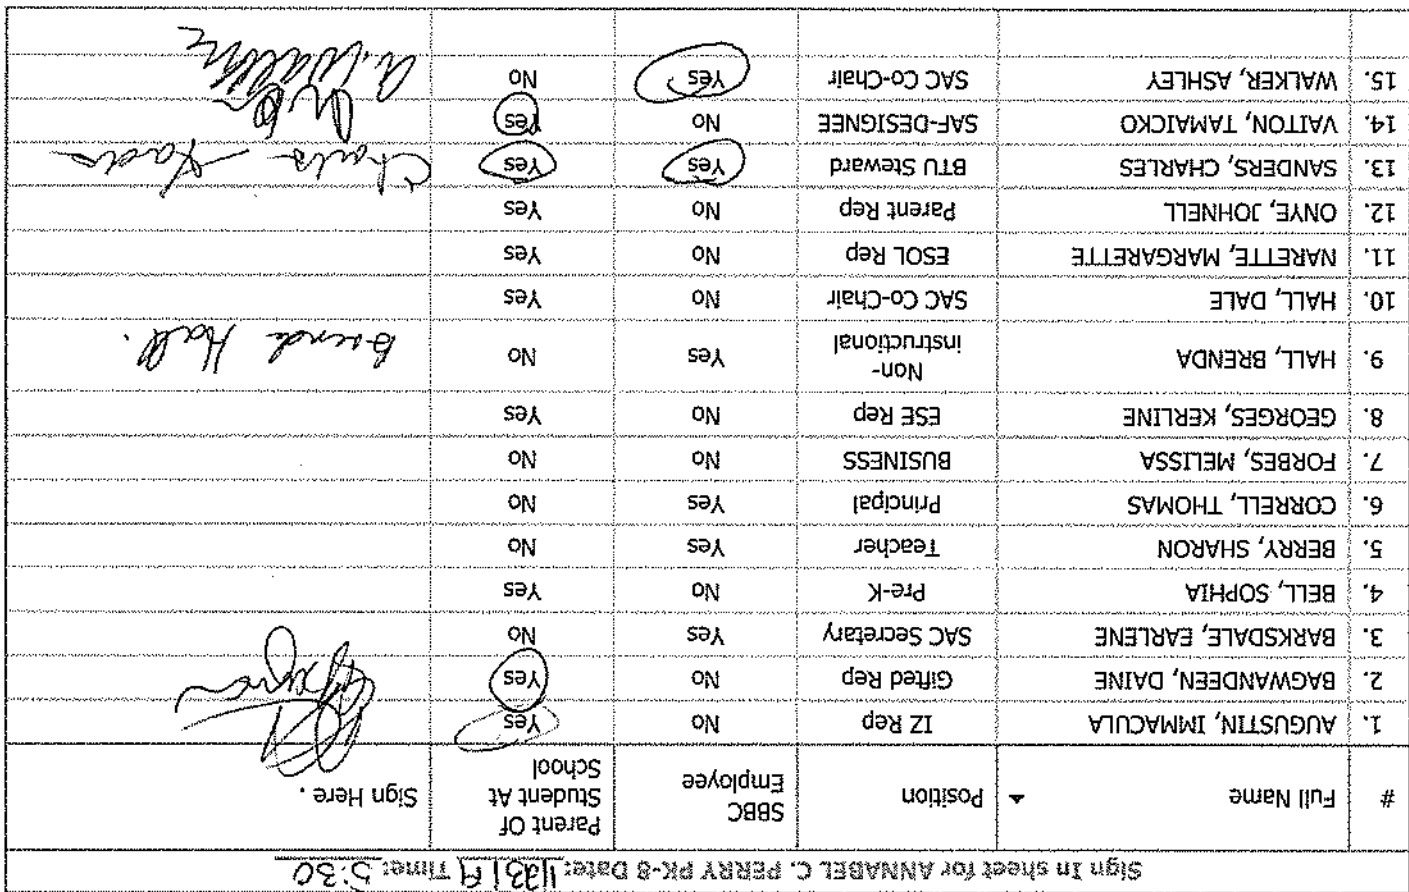 Sign In sheet for ANNABEL C. PERRY PK-8 Date: 1/23/19 Time: 5:30
# Full Name Position SBBC Employee Parent Of Student At School Sign Here .
1. AUGUSTIN, IMMACULA IZ Rep No Yes
2. BAGWANDEEN, DAINE Gifted Rep No Yes
3. BARKSDALE, EARLENE SAC Secretary Yes No
4. BELL, SOPHIA Pre-K No Yes
5. BERRY, SHARON Teacher Yes No
6. CORRELL, THOMAS Principal Yes No
7. FORBES, MELISSA BUSINESS No No
8. GEORGES, KERLINE ESE Rep No Yes
9. HALL, BRENDA Non-instructional Yes No Brenda Hall.
10. HALL, DALE SAC Co-Chair No Yes
11. NARETTE, MARGARETTE ESOL Rep No Yes
12. ONYE, JOHNELL Parent Rep No Yes
13. SANDERS, CHARLES BTU Steward Yes Yes
14. VAITON, TAMAICKO SAF-DESIGNEE No Yes
15. WALKER, ASHLEY SAC Co-Chair Yes No A. Walker